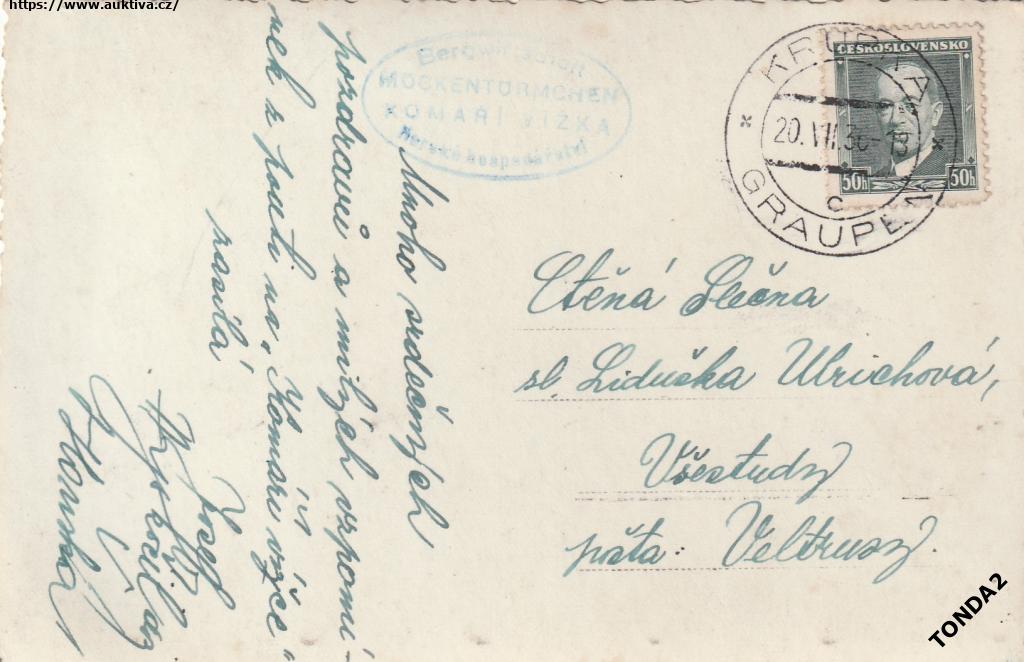 https://www.auktiva.cz/
Bergwirtschaft
MÜCKENTÜRMCHEN
KOMAŘÍ VÍŽKA
Horské hospodářství
KRUPKA
20.VII.36-13
C
GRAUPEN
ČESKOSLOVENSKO
50h 50h
Mnoho srdečných
pozdravů a milých vzpomí-
nek z pouti na „Komáří vížce"
zasílá
Josef
Ctěná Slečna
sl. Liduška Ulrichová,
Všestudy
pošta: Veltrusy.
TONDA2